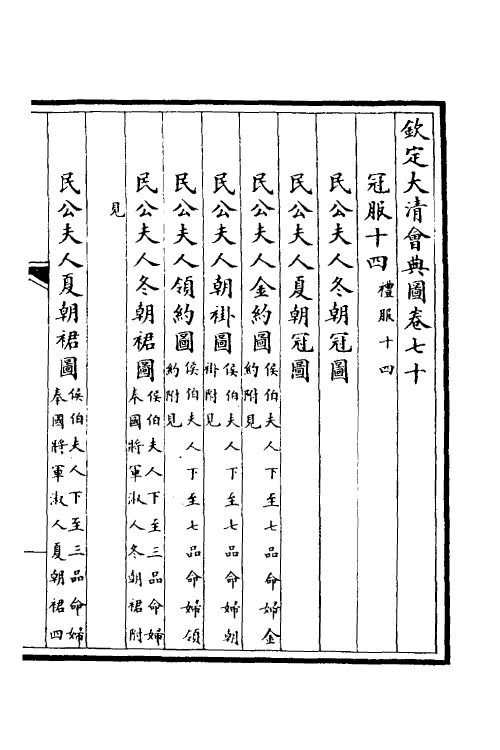 欽定大清會典圖卷七十
冠服十四禮服十四
民公夫人冬朝冠圖
民公夫人夏朝冠圖
民公夫人金約圖侯伯夫人下至七品命婦金約附見
民公夫人朝褂圖侯伯夫人下至七品命婦朝褂附見
民公夫人領約圖侯伯夫人下至七品命婦領約附見
民公夫人冬朝裙圖侯伯夫人下至三品命婦奉國將軍淑人冬朝裙附
見
民公夫人夏朝裙圖侯伯夫人下至三品命婦奉國將軍淑人夏朝裙四